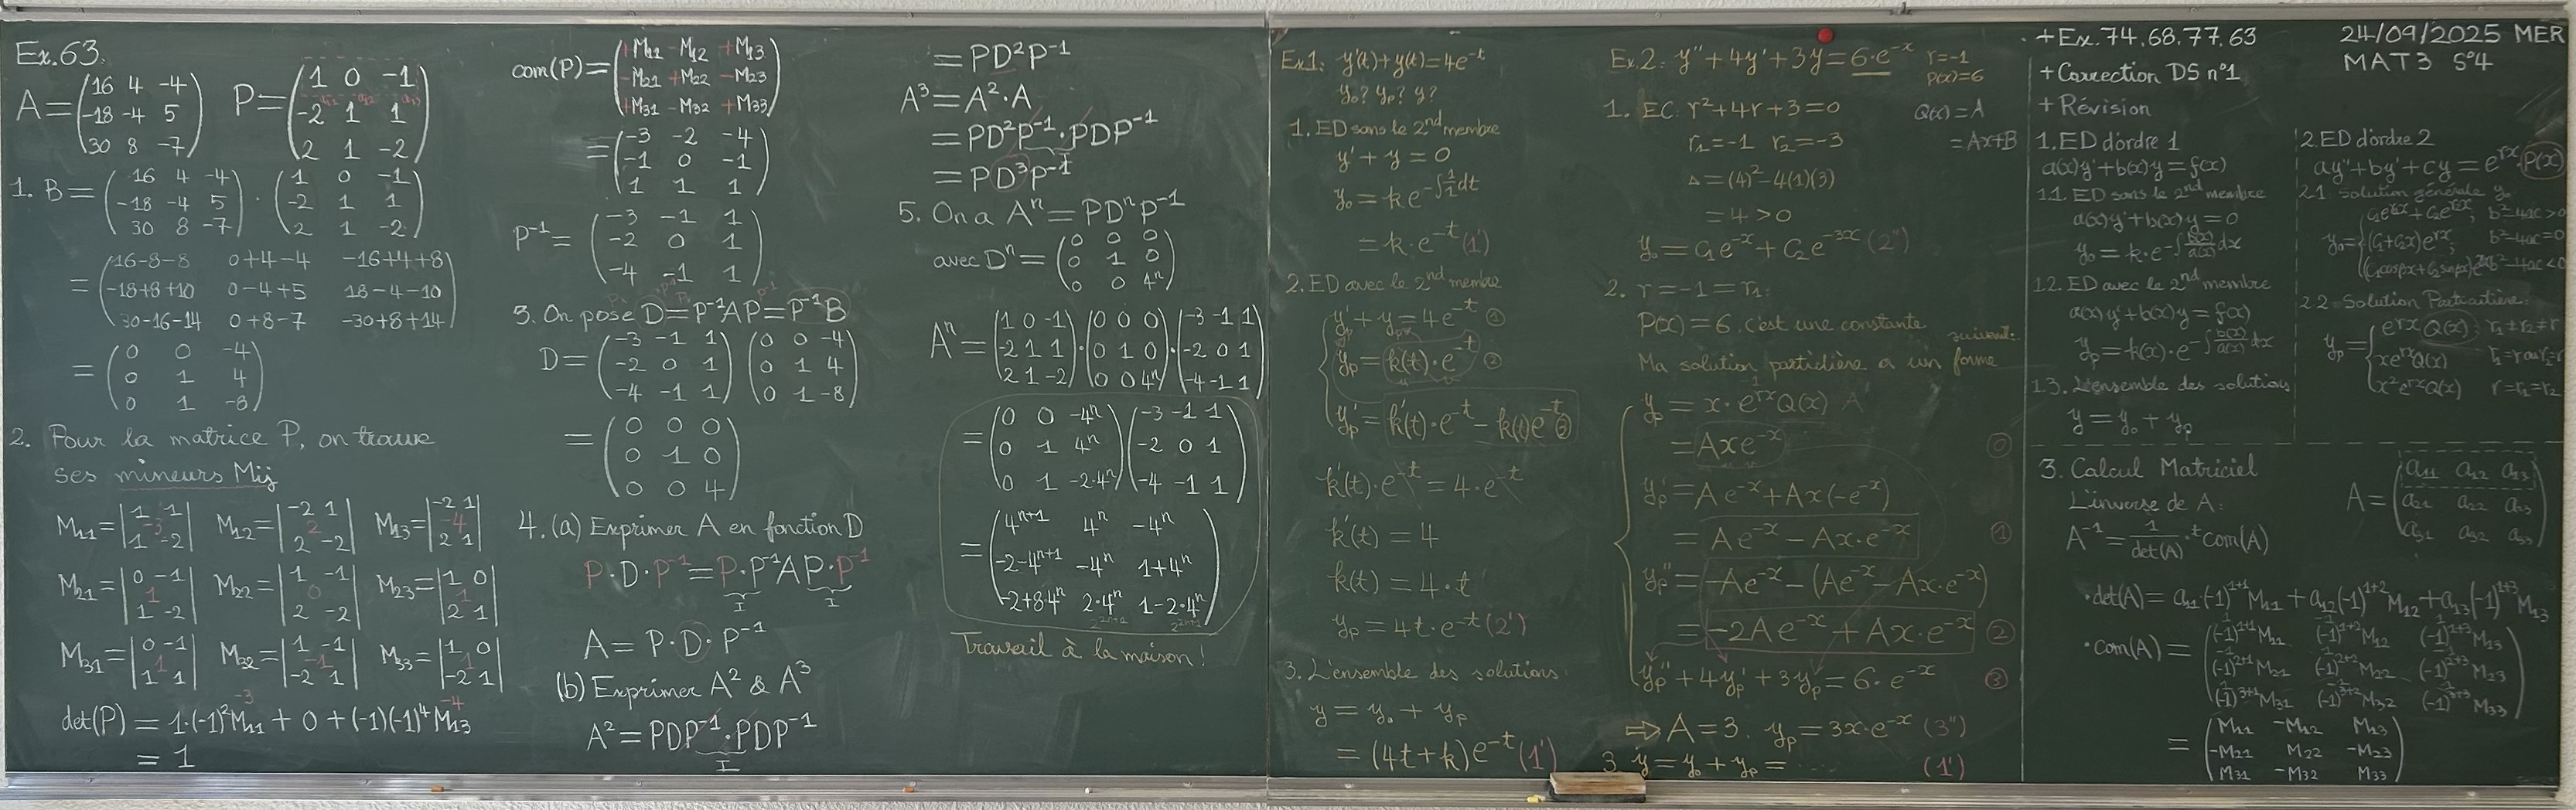 Ex.63.
A = (16 4 -4 ; -18 -4 5 ; 30 8 -7)   P = (1 0 -1 ; -2 1 1 ; 2 1 -2)
1. B = (16 4 -4 ; -18 -4 5 ; 30 8 -7) · (1 0 -1 ; -2 1 1 ; 2 1 -2)
= (16-8-8   0+4-4   -16+4+8 ; -18+8+10   0-4+5   18-4-10 ; 30-16-14   0+8-7   -30+8+14)
= (0 0 -4 ; 0 1 4 ; 0 1 -8)
2. Pour la matrice P, on trouve
ses mineurs Mij
M11 = |1 1 ; 1 -2| -3   M12 = |-2 1 ; 2 -2| 2   M13 = |-2 1 ; 2 1| -4
M21 = |0 -1 ; 1 -2| 1   M22 = |1 -1 ; 2 -2| 0   M23 = |1 0 ; 2 1| 1
M31 = |0 -1 ; 1 1| 1   M32 = |1 -1 ; -2 1| -1   M33 = |1 0 ; -2 1| 1
-3   -4
det(P) = 1·(-1)²M11 + 0 + (-1)(-1)⁴M13
= 1
com(P) = (+M11 -M12 +M13 ; -M21 +M22 -M23 ; +M31 -M32 +M33)
= (-3 -2 -4 ; -1 0 -1 ; 1 1 1)
P⁻¹ = (-3 -1 1 ; -2 0 1 ; -4 -1 1)
3. On pose D = P⁻¹AP = P⁻¹B
D = (-3 -1 1 ; -2 0 1 ; -4 -1 1) (0 0 -4 ; 0 1 4 ; 0 1 -8)
= (0 0 0 ; 0 1 0 ; 0 0 4)
4. (a) Exprimer A en fonction D
P·D·P⁻¹ = P·P⁻¹AP·P⁻¹
I   I
A = P·D·P⁻¹
(b) Exprimer A² & A³
A² = PDP⁻¹·PDP⁻¹
I
= PD²P⁻¹
A³ = A²·A
= PD²P⁻¹·PDP⁻¹
I
= PD³P⁻¹
5. On a Aⁿ = PDⁿP⁻¹
avec Dⁿ = (0 0 0 ; 0 1 0 ; 0 0 4ⁿ)
Aⁿ = (1 0 -1 ; -2 1 1 ; 2 1 -2)·(0 0 0 ; 0 1 0 ; 0 0 4ⁿ)·(-3 -1 1 ; -2 0 1 ; -4 -1 1)
= (0 0 -4ⁿ ; 0 1 4ⁿ ; 0 1 -2·4ⁿ) (-3 -1 1 ; -2 0 1 ; -4 -1 1)
= (4ⁿ⁺¹   4ⁿ   -4ⁿ ; -2-4ⁿ⁺¹   -4ⁿ   1+4ⁿ ; -2+8·4ⁿ   2·4ⁿ   1-2·4ⁿ)
2²ⁿ⁺¹   2²ⁿ⁺¹
Travail à la maison !
Ex1: y'(t)+y(t)=4e⁻ᵗ
y₀? yp? y?
1. ED sans le 2nd membre
y' + y = 0
y₀ = k e^(-∫1/1 dt)
= k·e⁻ᵗ (1')
2. ED avec le 2nd membre
y'p + yp = 4e⁻ᵗ ①
yp = k(t)·e⁻ᵗ ②
y'p = k'(t)·e⁻ᵗ - k(t)e⁻ᵗ ③
k'(t)·e⁻ᵗ = 4·e⁻ᵗ
k'(t) = 4
k(t) = 4·t
yp = 4t·e⁻ᵗ (2')
3. L'ensemble des solutions:
y = y₀ + yp
= (4t+k)e⁻ᵗ (1')
Ex2: y''+4y'+3y = 6·e⁻ˣ   r=-1
P(x)=6
1. EC: r²+4r+3=0   Q(x)=A
r₁=-1   r₂=-3   =Ax+B
Δ=(4)²-4(1)(3)
=4>0
y₀ = c₁e⁻ˣ + c₂e⁻³ˣ (2'')
2. r=-1=r₁:
P(x)=6. c'est une constante
Ma solution particulière a un forme suivant:
yp = x·eʳˣQ(x) A
= Axe⁻ˣ ⓪
y'p = Ae⁻ˣ+Ax(-e⁻ˣ)
= Ae⁻ˣ - Ax·e⁻ˣ ①
y''p = -Ae⁻ˣ-(Ae⁻ˣ-Ax·e⁻ˣ)
= -2Ae⁻ˣ+Ax·e⁻ˣ ②
y''p + 4y'p + 3yp = 6·e⁻ˣ ③
⇒ A=3. yp = 3x·e⁻ˣ (3'')
3 y = y₀ + yp = ..... (1')
+Ex.74.68.77.63   24/09/2025 MER
+Correction DS n°1   MAT3 S°4
+Révision
1. ED d'ordre 1
a(x)y'+b(x)y=f(x)
1.1. ED sans le 2nd membre
a(x)y'+b(x)y=0
y₀=k·e^(-∫b(x)/a(x) dx)
1.2. ED avec le 2nd membre
a(x)y'+b(x)y=f(x)
yp=k(x)·e^(-∫b(x)/a(x) dx)
1.3. L'ensemble des solutions
y = y₀ + yp
2. ED d'ordre 2
ay''+by'+cy = eʳˣ P(x)
2.1 Solution générale y₀
y₀ = { c₁e^(r₁x)+c₂e^(r₂x); b²-4ac>0
(c₁+c₂x)eʳˣ; b²-4ac=0
b²-4ac<0
2.2. Solution Particulière:
yp = { eʳˣQ(x): r₁≠r₂≠r
xeʳˣQ(x)
x²eʳˣQ(x) r=r₁=r₂
3. Calcul Matriciel
L'inverse de A:
A⁻¹ = 1/det(A) · ᵗcom(A)
A = (a11 a12 a13 ; a21 a22 a23 ; a31 a32 a33)
·det(A) = a11(-1)¹⁺¹M11 + a12(-1)¹⁺²M12 + a13(-1)¹⁺³M13
·com(A) = ((-1)¹⁺¹M11   (-1)¹⁺²M12   (-1)¹⁺³M13 ; (-1)²⁺¹M21   (-1)²⁺²M22   (-1)²⁺³M23 ; (-1)³⁺¹M31   (-1)³⁺²M32   (-1)³⁺³M33)
= (M11 -M12 M13 ; -M21 M22 -M23 ; M31 -M32 M33)